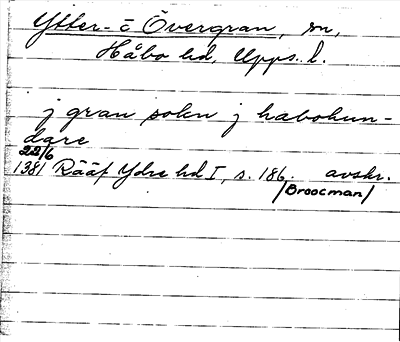 Ytter- o Övergran, sn,
Håbo hd, Upps. l.
j gran sokn j habohun-
dare
22/6
1381 Rääf Ydre hd I, s. 186. avskr.
/Broocman/